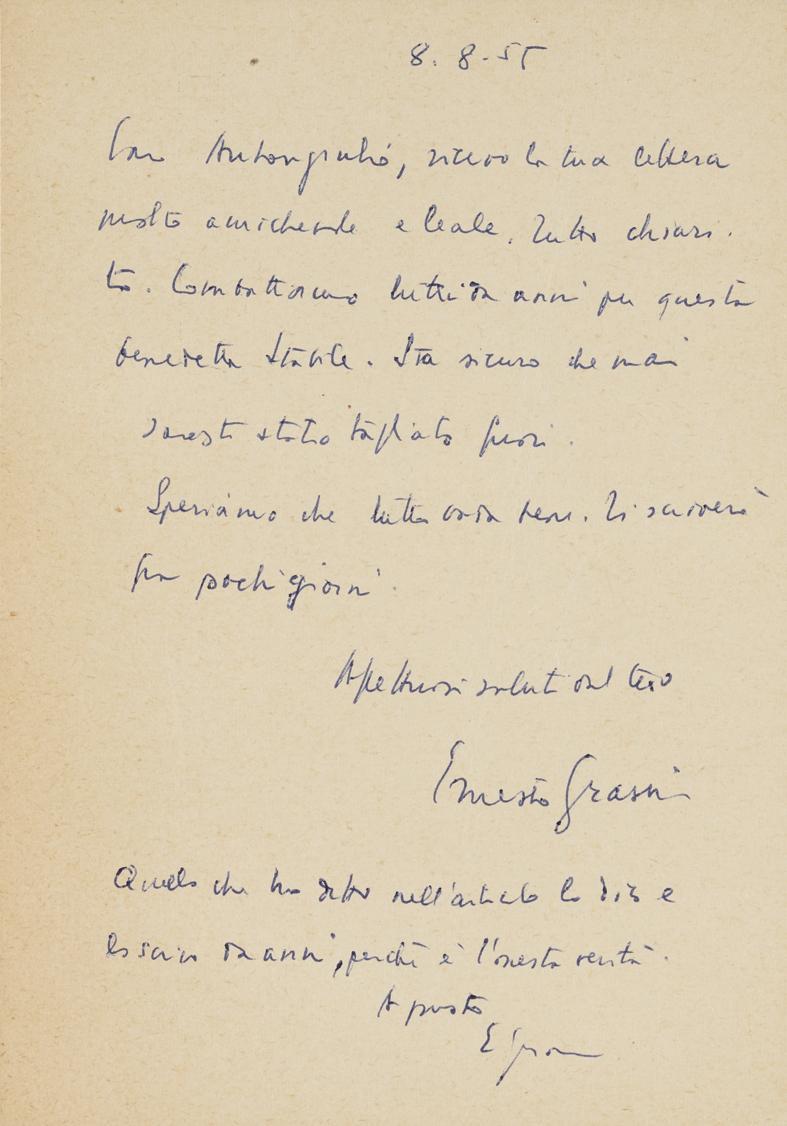 8. 8. 55
Caro Antongiulio, ricevo la tua lettera
molto amichevole e leale. Tutto chiari-
to. Combattiamo tutti da anni per questa
benedetta Stabile. Sta sicuro che mai
saresti stato tagliato fuori.
Speriamo che tutto vada bene. Ti scriverò
fra pochi giorni.
Affettuosi saluti dal tuo
Ernesto Grassi
Quello che ho detto nell'articolo lo dico e
lo scrivo da anni, perché è l'onesta verità.
A presto